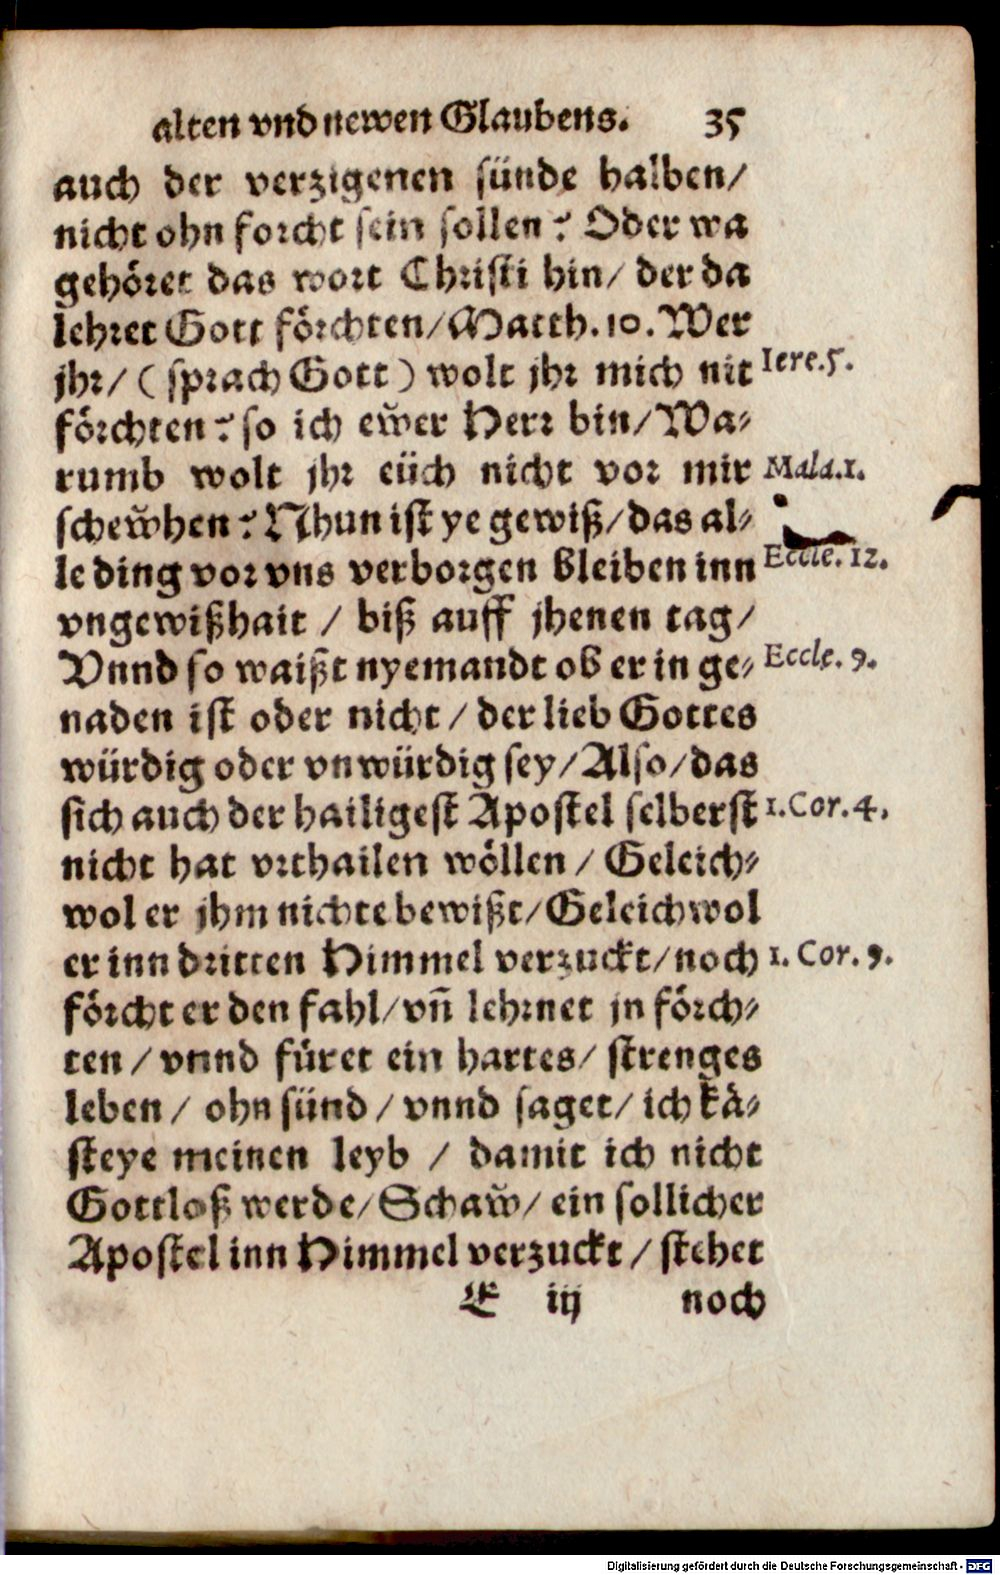 alten vnd newen Glaubens. 35
auch der verzigenen sünde halben/
nicht ohn forcht sein sollen? Oder wa
gehöret das wort Christi hin/ der da
lehret Gott förchten/ Matth. 10. Wer
jhr/ (sprach Gott) wolt jhr mich nit
Iere. 5.
förchten? so ich ew̃er Herr bin/ Wa-
rumb wolt jhr eüch nicht vor mir
Mala. 1.
schew̃hen? Nhun ist ye gewiß/ das al-
le ding vor vns verborgen bleiben inn
Eccle. 12.
vngewißhait / biß auff jhenen tag/
Vnnd so waißt nyemandt ob er in ge-
Eccle. 9.
naden ist oder nicht / der lieb Gottes
würdig oder vnwürdig sey/ Also/ das
sich auch der hailigest Apostel selberst
1. Cor. 4.
nicht hat vrthailen wöllen / Geleich-
wol er jhm nichte bewißt/ Geleichwol
er inn dritten Himmel verzuckt/ noch
1. Cor. 9.
förcht er den fahl/ vn̄ lehrnet jn förch-
ten / vnnd füret ein hartes/ strenges
leben / ohn sünd / vnnd saget/ ich kä-
steye meinen leyb / damit ich nicht
Gottloß werde/ Schaw̃/ ein sollicher
Apostel inn Himmel verzuckt / stehet
E iij noch
Digitalisierung gefördert durch die Deutsche Forschungsgemeinschaft - DFG